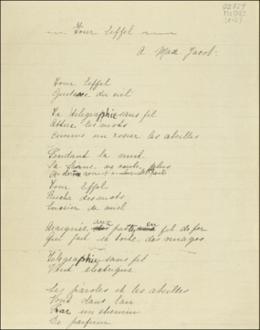 Tour Eiffel
A Max Jacob.
Tour Eiffel
Guitare du ciel
Ta télégraphie sans fil
Attire les mots
Comme un rosier les abeilles
Pendant la nuit
La Seine ne coule plus
Tour Eiffel
Ruche de mots
Encrier de miel
Araignée aux pattes en fil de fer
qui fait sa toile des nuages
Télégraphie sans fil
Vent électrique
Les paroles et les abeilles
Vont dans l'air
Par un chemin
De parfum